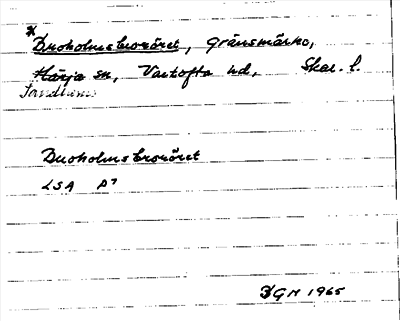 *Buoholmsbroröret, gränsmärke,
Härja sn, Vartofta hd, Skar. l.
Sandhem
Buoholmsbroröret
LSA P7
BGN 1965